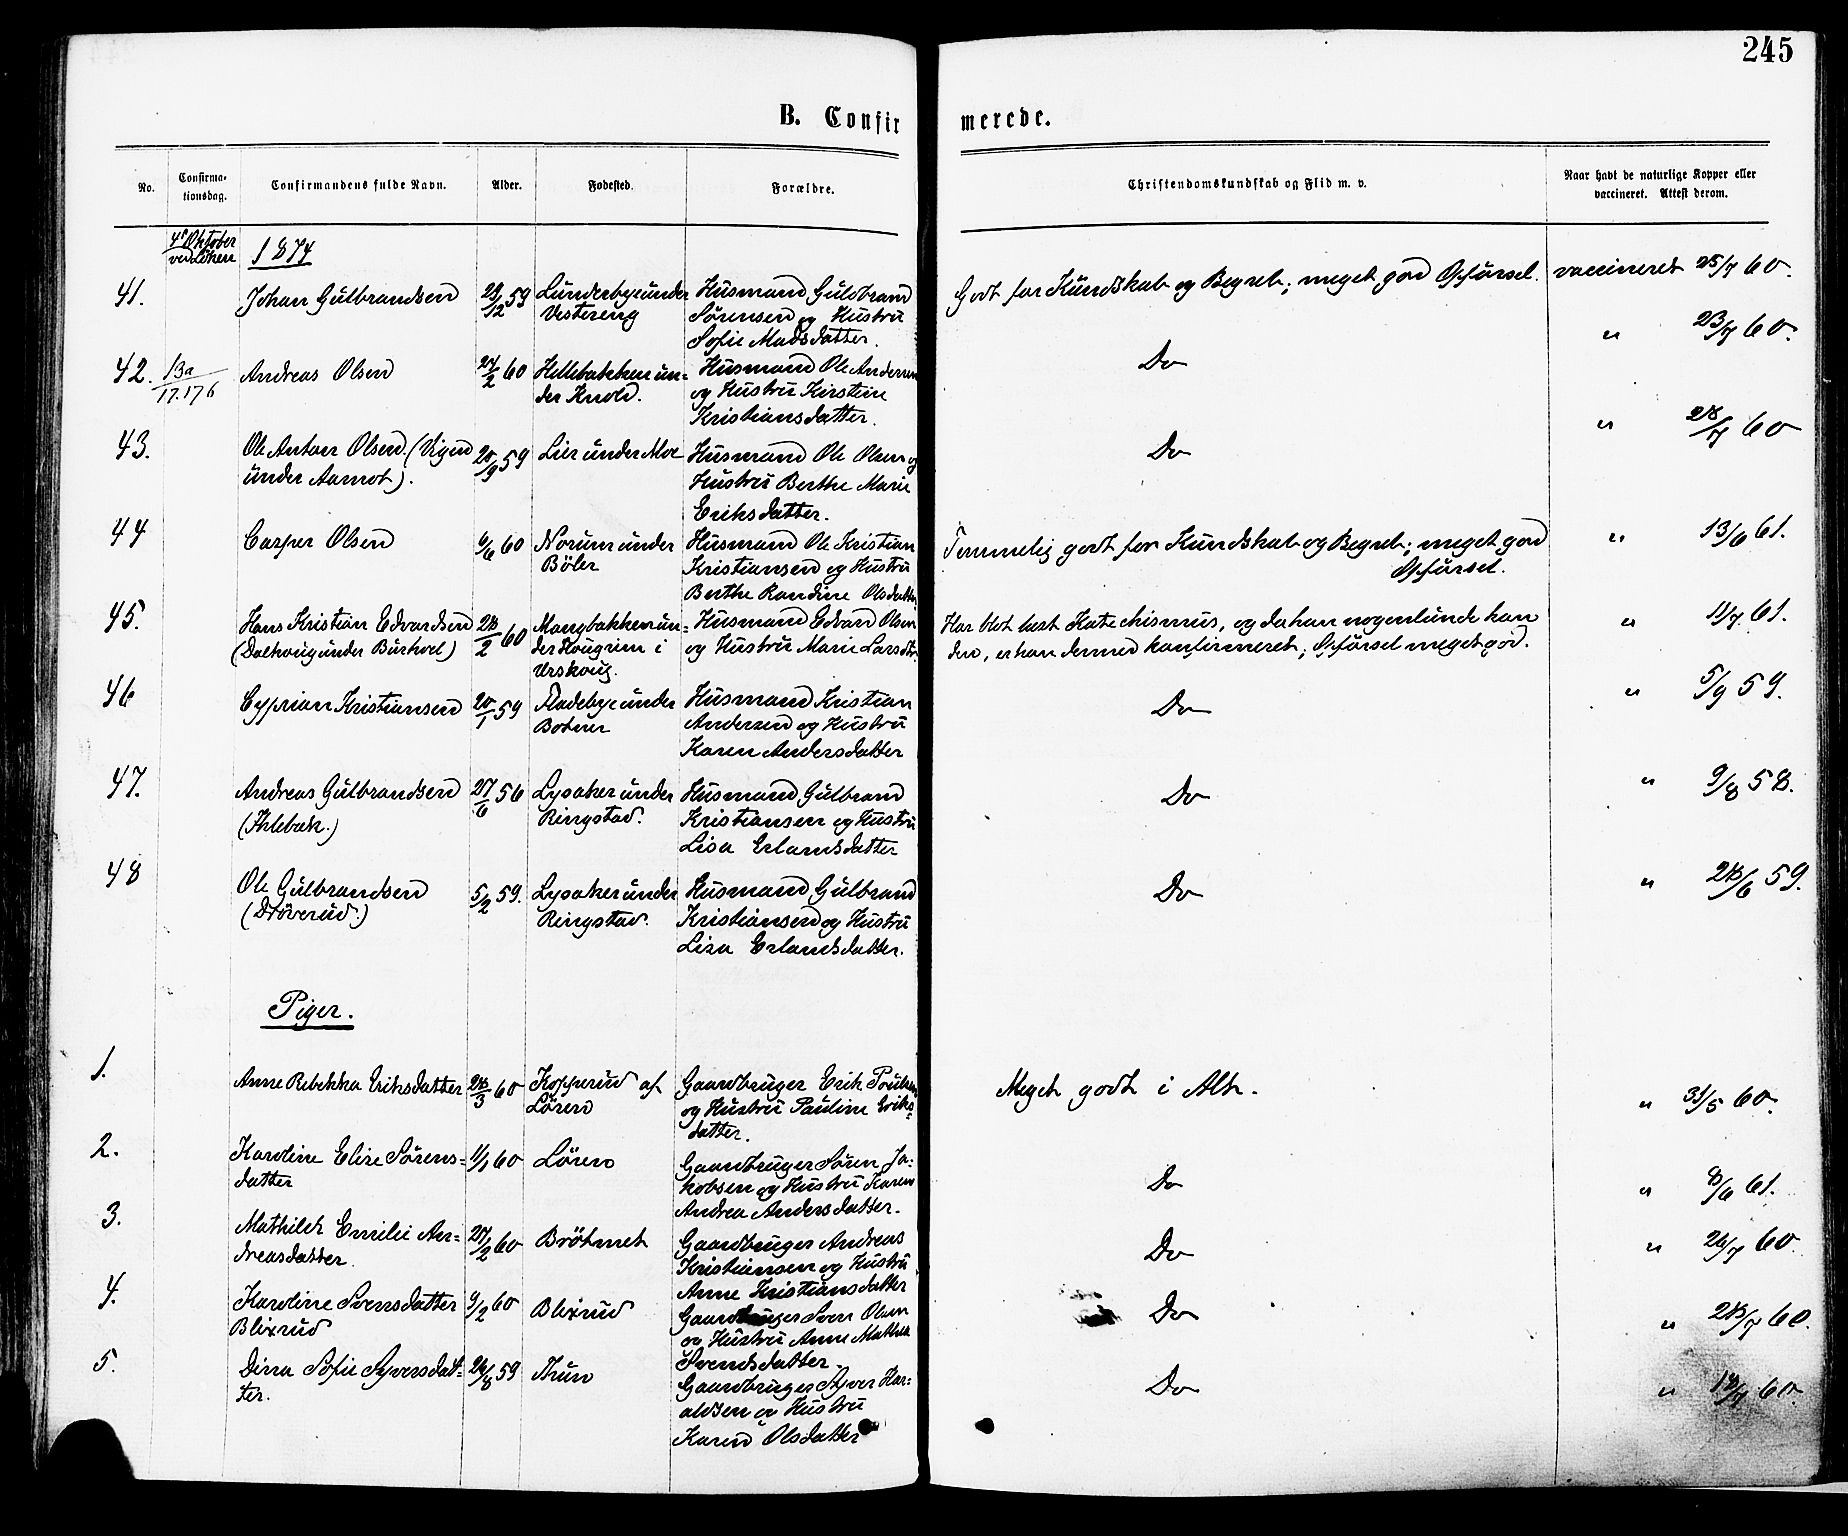 245
B. Confir
merede.
No.
Confirma-
tionsdag.
Confirmandens fulde Navn.
Alder.
Fødested.
Forældre.
Christendomskundskab og Flid m. v.
Naar havt de naturlige Kopper eller
vaccineret. Attest derom.
4de Oktober
ved Løken
1874
41.
Johan Gulbrandsen
29/12 59
Lundebye under
Vestereng
Husmand Gulbrand
Sørensen og Hustru
Sofie Madsdatter.
Godt for Kundskab og Begreb; meget god Opførsel.
vaccineret 25/7 60.
42.
13a
17.176
Andreas Olsen
24/2 60
Hellebakken un-
der Knold.
Husmand Ole Andersen
og Hustru Kirstine
Kristiansdatter.
Do
" 23/7 60.
43.
Ole Anton Olsen (Vigen
under Aamot).
20/9 59
Lier under Moe
Husmand Ole Olsen og
Hustru Berthe Marie
Eriksdatter.
Do
" 28/7 60
44
Casper Olsen
6/6 60
Norum under
Böler
Husmand Ole Kristian
Kristiansen og Hustru
Berthe Randine Olsdatter
Temmelig godt for Kundskab og Begreb; meget god
Opførsel.
" 13/6 61.
45.
Hans Kristian Edvardsen
(Dalhoug under Burhol)
28/2 60
Mangbakken un-
der Hougrim i
Urskoug.
Husmand Edvard Olsen
og Hustru Marie Larsdtr.
Har blot læst Katechismus, og da han nogenlunde kan
den, er han dermed konfirmeret; Opførsel meget god.
" 11/7 61.
46
Cyprian Kristiansen
20/1 59
Fladebye under
Botner
Husmand Kristian
Andersen og Hustru
Karen Andersdatter
Do
" 5/9 59.
47.
Andreas Gulbrandsen
(Ihlebæk.)
27/6 56
Lysaker under
Ringstad.
Husmand Gulbrand
Kristiansen og Hustru
Lisa Erlandsdatter
Do
" 9/8 58.
48
Ole Gulbrandsen
(Dröverud.)
5/2 59.
Lysaker under
Ringstad.
Husmand Gulbrand
Kristiansen og Hustru
Lisa Erlandsdatter.
Do
" 28/6 59.
Piger.
1.
Anne Rebekka Eriksdatter
28/3 60
Kopperud af
Løren
Gaardbruger Erik Poulsen
og Hustru Pauline Eriks-
datter.
Meget godt i Alt.
" 31/5 60.
2.
Karoline Elise Sørens-
datter
1/1 60
Løren
Gaardbruger Søren Ja-
kobsen og Hustru Karen
Andrea Andersdatter.
Do
" 8/6 61.
3.
Mathilde Emilie An-
dreasdatter.
27/2 60
Brötmet
Gaardbruger Andreas
Kristiansen og Hustru
Anne Kristiansdatter
Do
" 26/7 60.
4.
Karoline Svensdatter
Blixrud
9/2 60
Blixrud
Gaardbruger Sven Olsen
og Hustru Anne Mathea
Svendsdatter.
Do
" 28/7 60.
5.
Dina Sofie Syversdat-
ter.
26/8 59
Thun
Gaardbruger Syver Har-
aldsen og Hustru
Karen Olsdatter
Do
" 18/7 60.